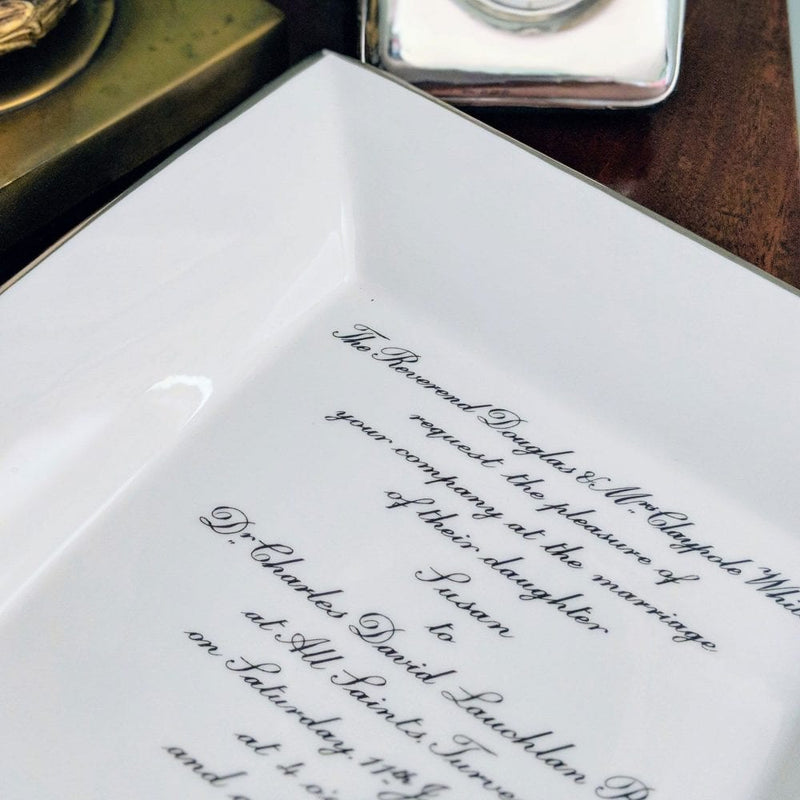 The Reverend Douglas & Mrs Claypole
request the pleasure of
your company at the marriage
of their daughter
Susan
to
Dr. Charles David Lauchlan
at All Saints,
on Saturday, 11th
at 4
and